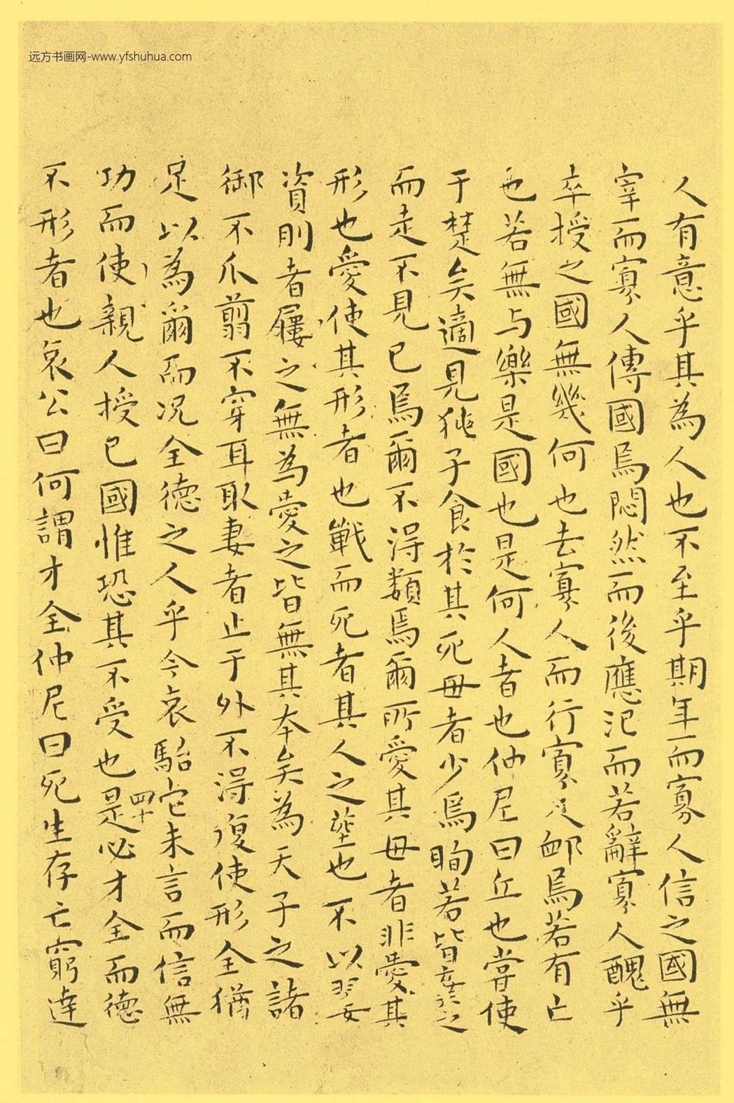 远方书画网-www.yfshuhua.com
人有意乎其為人也不至乎期年而寡人信之國無
宰而寡人傳國焉悶然而後應氾而若辭寡人醜乎
卒授之國無幾何也去寡人而行寡人卹焉若有亡
也若無与樂是國也是何人者也仲尼曰丘也嘗使
于楚矣適見㹠子食於其死母者少焉眴若皆棄之
而走不見已焉爾不得類焉爾所愛其母者非愛其
形也愛使其形者也戰而死者其人之葬也不以翣
資刖者屨之無為愛之皆無其本矣為天子之諸
御不爪翦不穿耳取妻者止于外不得復使形全猶
足以為爾而況全德之人乎今哀駘它未言而信無
功而使親人授已國惟恐其不受也是必才全而德
四十
不形者也哀公曰何謂才全仲尼曰死生存亡窮達